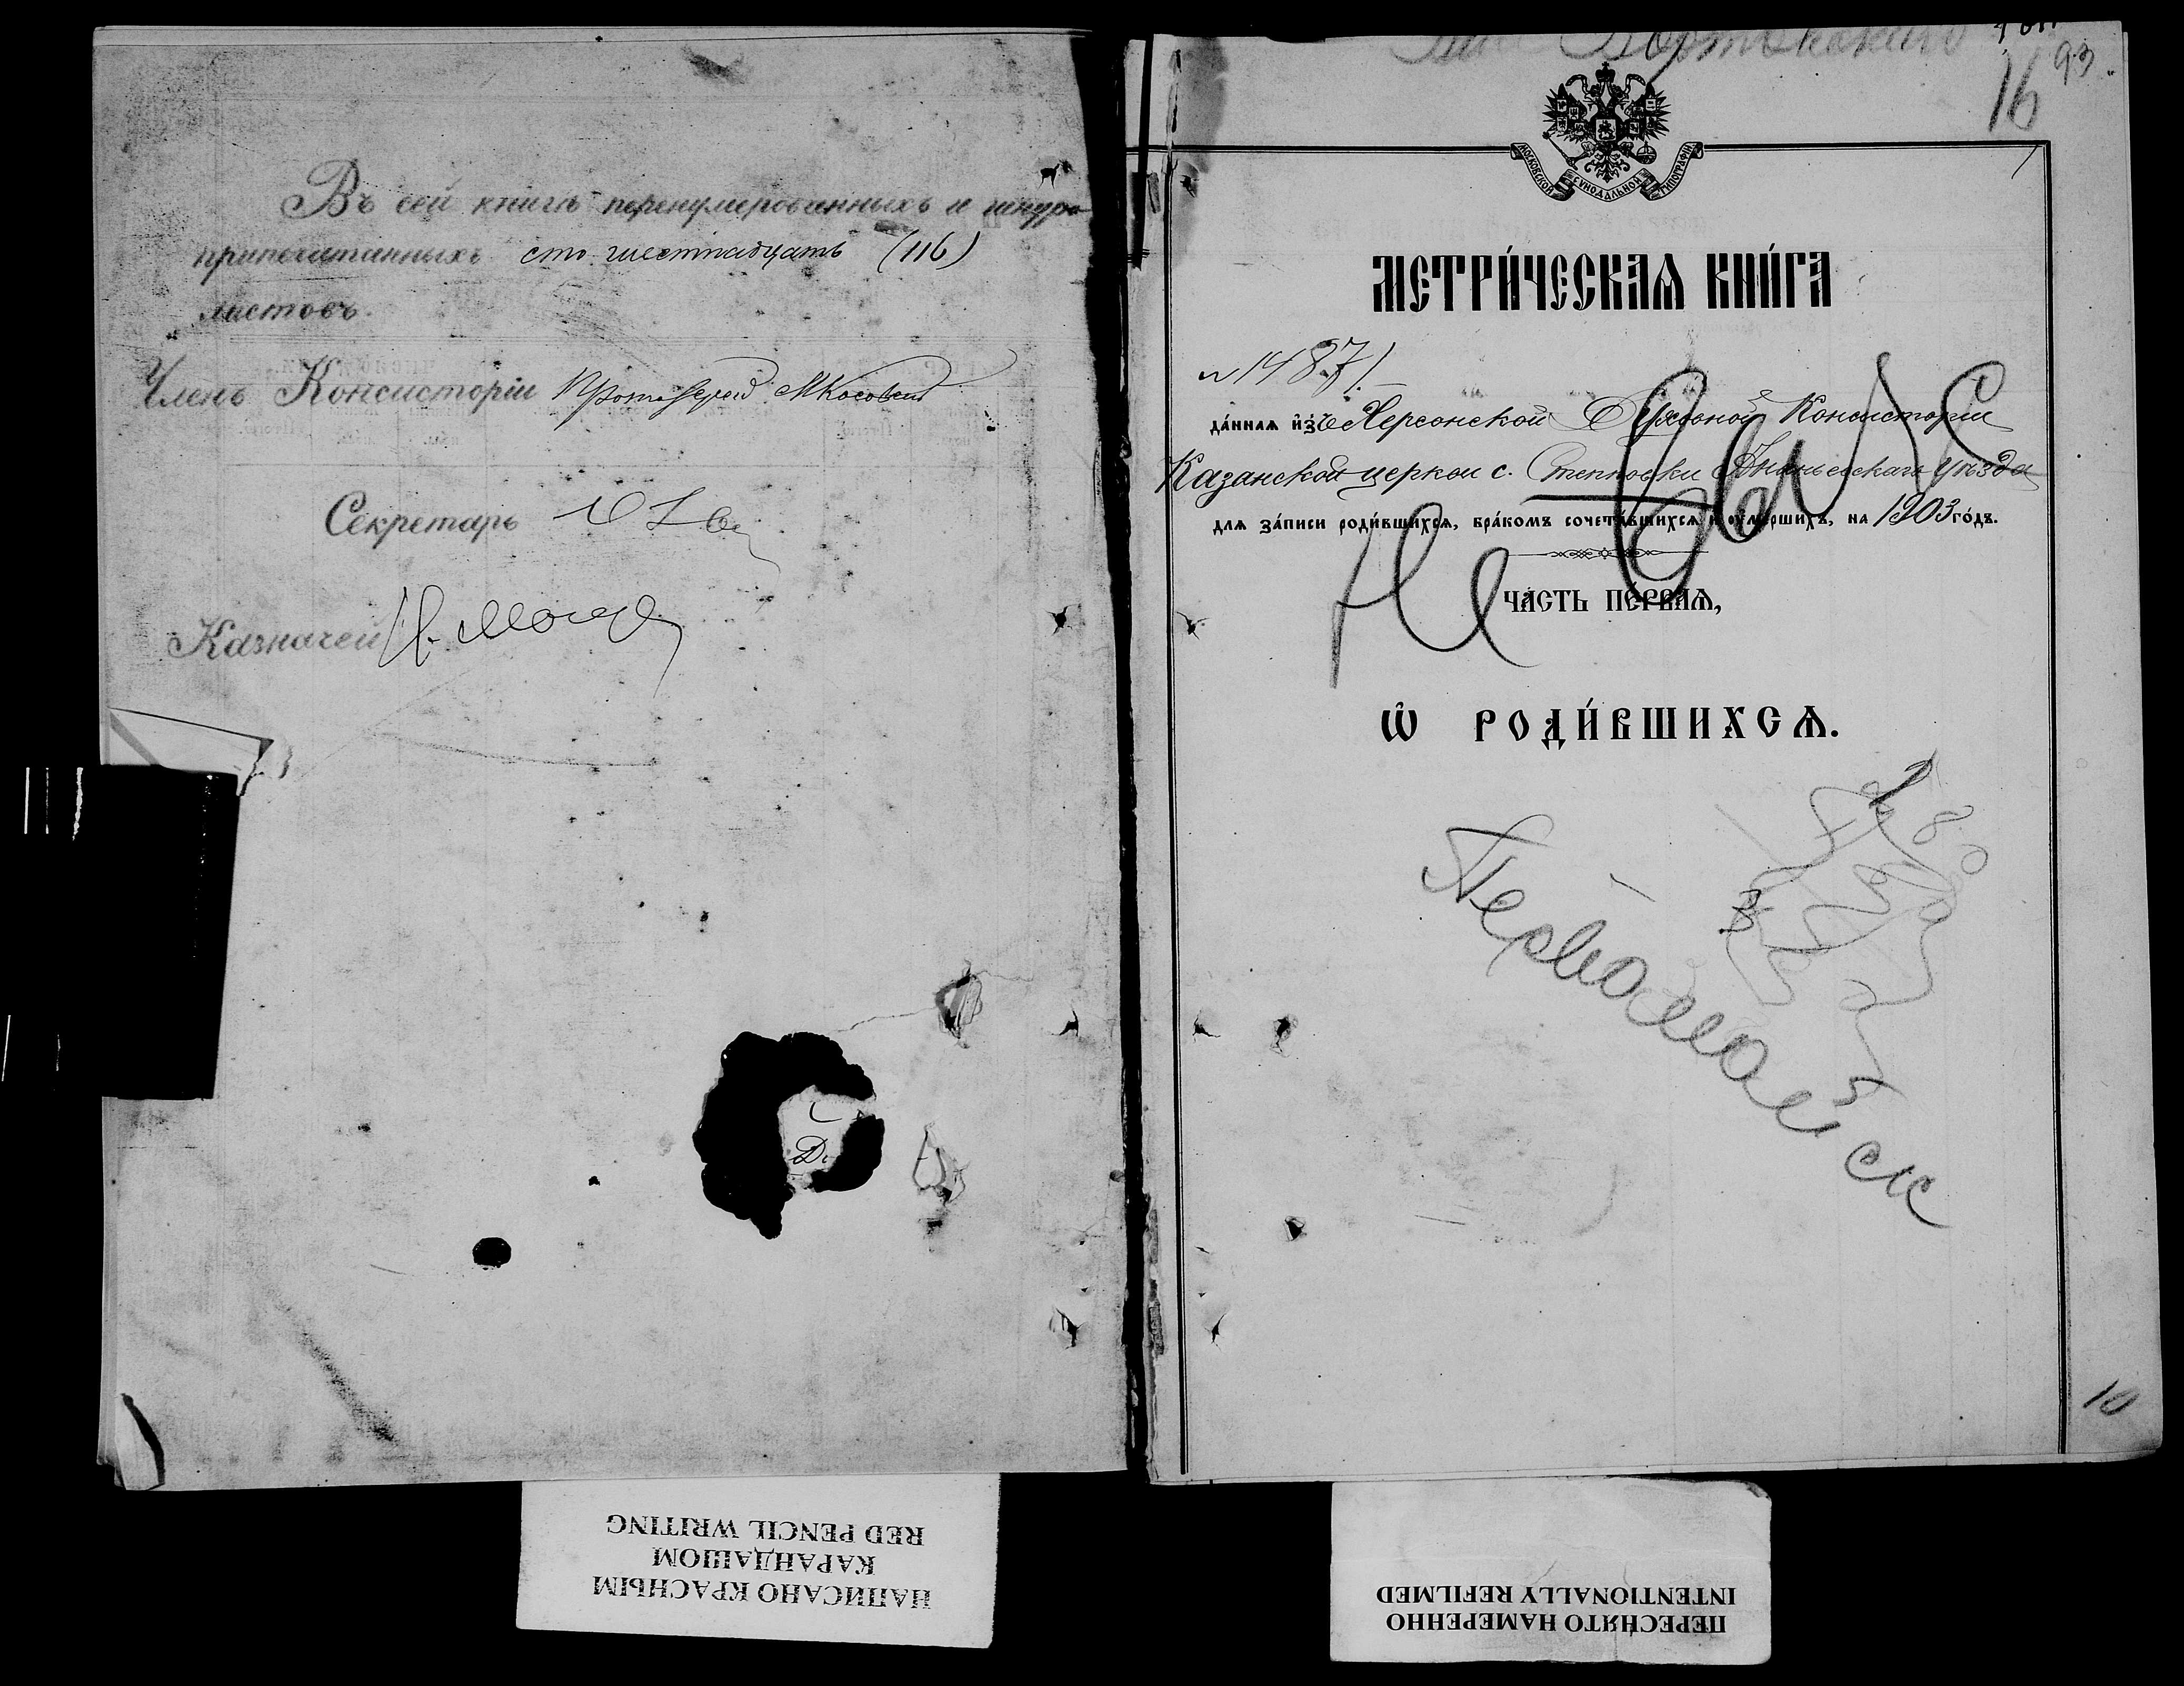 Въ сей книгѣ перенумерованныхъ и шнуро
припечатанныхъ сто шестнадцать (116)
листовъ.
Членъ Консисторіи Протоіерей М Косовскій
Секретарь
Казначей
Д.
НАПИСАНО КРАСНЫМ
КАРАНДАШОМ
RED PENCIL WRITING
93
16
МОСКОВСКОЙ СѴНОДАЛЬНОЙ ТИПОГРАФІИ
МЕТРИ́ЧЕСКАѦ КНИ́ГА
№ 14871.
да́ннаѧ и҆з̾ Херсонской Духовной Консисторіи
Казанской церкви с. Степковки Ананьевскаго уѣзда
для за́писи роди́вшихсѧ, бра́комъ сочета́вшихсѧ и оу҆ме́ршихъ, на 1903 го́дъ.
ЧАСТЬ ПЕ́РВАѦ,
Ѡ҆ РОДИ́ВШИХСѦ.
Не
Первомайск
10
ПЕРЕСНЯТО НАМЕРЕННО
INTENTIONALLY REFILMED